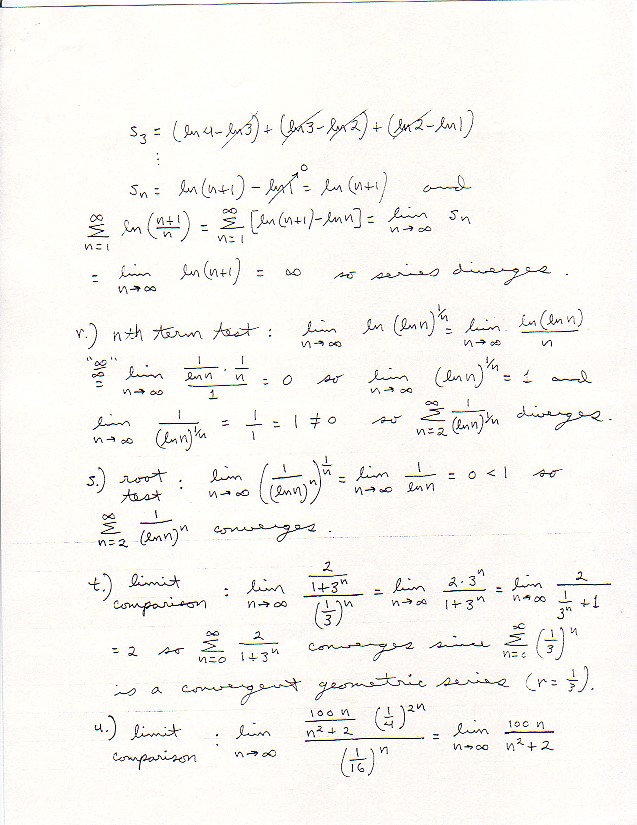 s₃ = (ln 4 - ln 3) + (ln 3 - ln 2) + (ln 2 - ln 1)
⋮
sₙ = ln(n+1) - ln 1 = ln(n+1) and
0
∞ ∑ n=1 ln((n+1)/n) = ∞ ∑ n=1 [ln(n+1) - ln n] = lim n→∞ sₙ
= lim n→∞ ln(n+1) = ∞ so series diverges.
r.) nth term test : lim n→∞ ln (ln n)^(1/n) = lim n→∞ ln(ln n)/n
"∞/∞" = lim n→∞ (1/(ln n) · 1/n)/1 = 0 so lim n→∞ (ln n)^(1/n) = 1 and
lim n→∞ 1/(ln n)^(1/n) = 1/1 = 1 ≠ 0 so ∞ ∑ n=2 1/(ln n)^(1/n) diverges.
s.) root test : lim n→∞ (1/(ln n)^n)^(1/n) = lim n→∞ 1/(ln n) = 0 < 1 so
∞ ∑ n=2 1/(ln n)^n converges.
t.) limit comparison : lim n→∞ (2/(1+3^n))/(1/3)^n = lim n→∞ (2·3^n)/(1+3^n) = lim n→∞ 2/(1/3^n + 1)
= 2 so ∞ ∑ n=0 2/(1+3^n) converges since ∞ ∑ n=0 (1/3)^n
is a convergent geometric series (r = 1/3).
u.) limit comparison : lim n→∞ (100n/(n²+2) (1/4)^(2n))/(1/16)^n = lim n→∞ 100n/(n²+2)